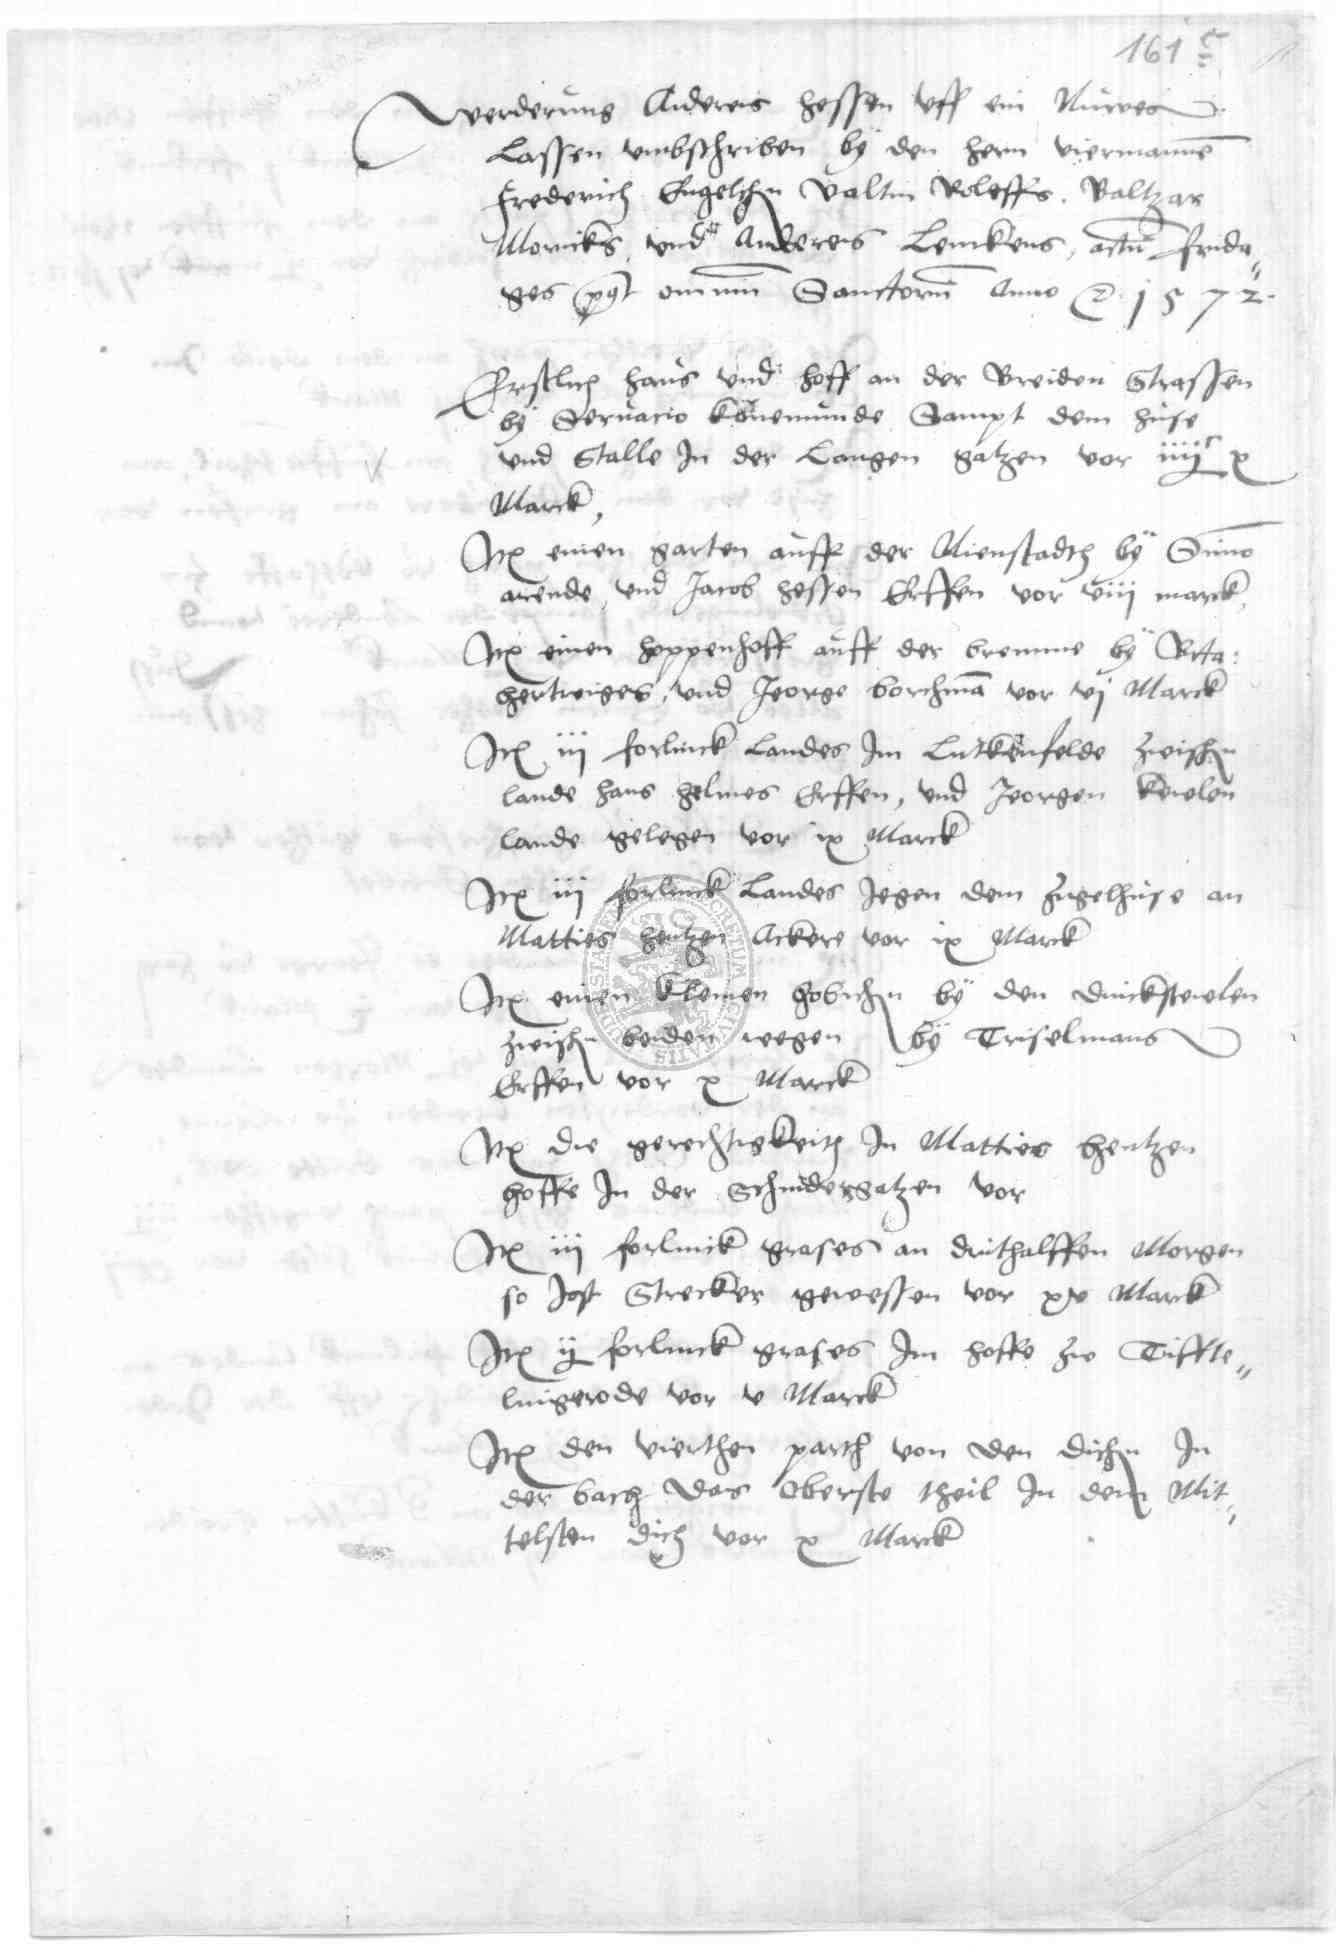 161 r
Werderung Andreis Hessen uff ein Nuwes
Lassen umbschriben by den hern viermannen
Frederich Engelhn Valtin Roleffs, Baltzar
Monicks, und Andereis Lenckens, actu frida„
ges post omnium Sanctorum Anno D. 1572.
Erstlich haus und hoff an der Breiden Strassen
by Servacio Konemunde Sampt dem huse
und Stalle In der Langen gatzen vor iiijc x
Marck,
Itē einen garten auff der Nienstadth by Simo
arende, und Jacob hessen Erffen vor viij marck,
Itē einen hoppenhoff auff der bremme by
hertwiges, und Jeorge borchman vor vj Marck
Itē iij forlinck Landes Im Lutkenfelde zwischn
lande hans helmes Erffen, und Jeorgen Kewlen
lande gelegen vor ix Marck
Itē iij forlinck Landes Jegen dem Zigelhuse an
Matties hentzen Ackere vor ix Marck
Itē einen kleinen hobichn by den
zwischn beiden wegen by Triselmans
Erffen vor x Marck
Itē die gerechtigkeith In Matties hentzen
hoffe In der Schnidergatzen vor
Itē iij forlinck grases an druthalffen Morgen
so Jost Strecker gewessen vor xv Marck
Itē ij forlinck grases Im hoffe zu Tiffte„
lingerode vor v Marck
Itē den vierthen parth von den dichn In
der bach das Oberste theil In dem Mit„
telsten dich vor x Marck